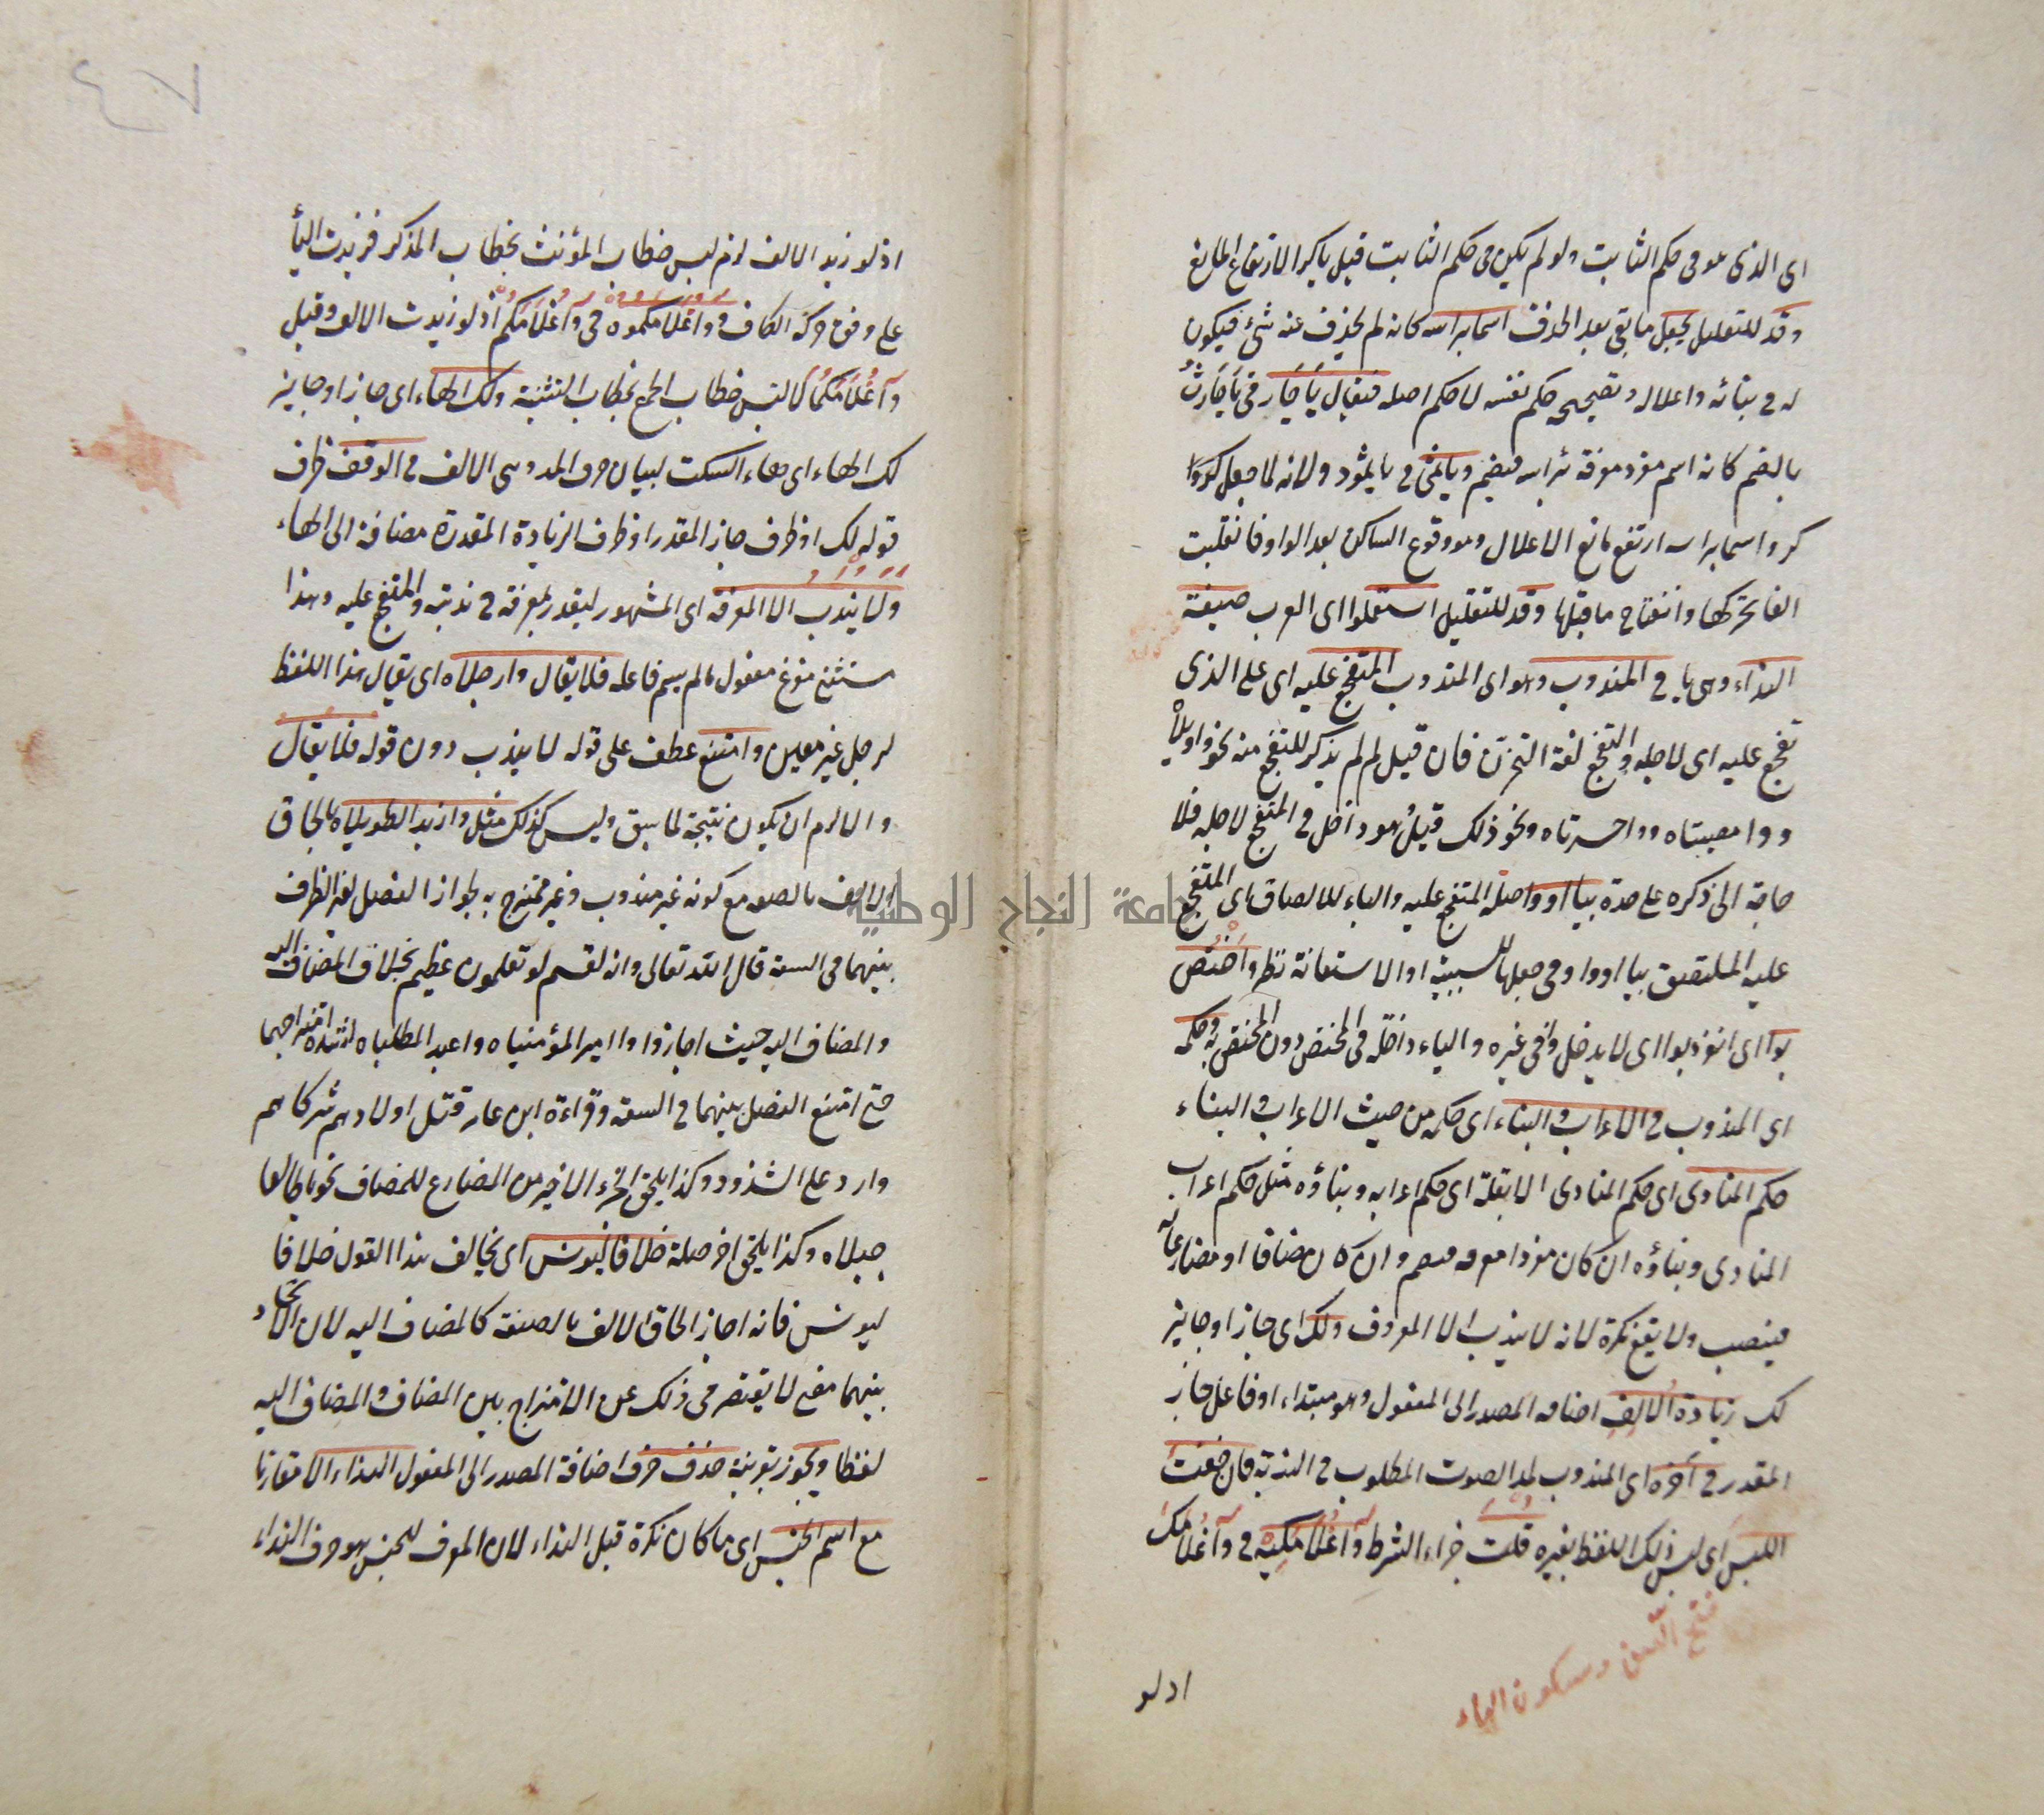 اى الذى هو فى حكم الثابت ولو لم يكن فى حكم الثابت قيل ياكرا لارتفاع المانع
وقد للتقليل يجعل ما بقى بعد الحذف اسما برأسه كانه لم يحذف عنه شئ فيكون
له فى بنائه واعلاله وتصحيحه حكم نفسه لا حكم اصله فيقال يَا حَارُ فى يَا حَارِثُ
بالضم كانه اسم مفرد معرفة برأسه فيضم ويا ثمى فى يا ثمود ولانه لما جعل كروا
كروا اسما برأسه ارتفع مانع الاعلال وهو وقوع الساكن بعد الواو فانقلبت
الفا لتحركها وانفتاح ما قبلها وقد للتقليل استعملوا اى العرب صيغة
النداء وهى يا فى المندوب وهو اى المندوب المتفجع عليه اى على الذى
تفجع عليه اى لاجله والتفجع لغة التحزن فان قيل لم لم يذكر المتفجع منه نحو واويلاه
ووا مصيبتاه ووا حسرتاه ونحو ذلك قيل هو داخل فى المتفجع لاجله فلا
حاجة الى ذكره على حدة بيا او وا صلة المتفجع عليه والباء للالصاق اى المتفجع
عليه الملتصق بيا او وا وفى جعلها للسببية او الاستعانة نظر واختص
بوا اى انفرد بوا اى لا يدخل وا فى غيره والباء داخلة فى المختص دون المختص به وحكمه
اى المندوب فى الاعراب والبناء اى حكمه من حيث الاعراب والبناء
حكم المنادى اى حكم المنادى الا بقلة اى حكم اعرابه وبناؤه مثل حكم اعراب
المنادى وبناؤه ان كان مفردا معرفة فيضم وان كان مضافا او مضارعا له
فينصب ولا يقع نكرة لانه لا يندب الا المعروف ولك اى جاز او جايز
لك زيادة الالف اضافة المصدر الى المفعول وهو مبتداء او فاعل جاز
المقدر فى آخره اى المندوب لمد الصوت المطلوب فى الندبة فان خفت
اللبس اى لبس ذلك اللفظ بغيره قلت جزاء الشرط وَاغُلَامَكِيه فى وَاغُلَامَكِ
فتح السين وسكون الهاء
اذ لو
اذ لو زيد الالف لزم لبس خطاب المؤنث بخطاب المذكر فزيدت الياء
على وفق حركة الكاف ووَاغُلَامَكُمُوه فى وَاغُلَامَكُم اذ لو زيدت الالف وقيل
وَاغُلَامَكُمَا لالتبس خطاب الجمع بخطاب التثنية ولك الهاء اى جاز او جايز
لك الهاء اى هاء السكت لبيان حرف المد وهى الالف فى الوقف ظرف
قوله لك او ظرف جاز المقدر او ظرف الزيادة المقدرة مضافة الى الهاء
ولا يندب الا المعرفة اى المشهور ليعذر بمعرفة فى ندبته والمتفجع عليه وهذا
مستثنى مفرغ مفعول مالم يسم فاعله فلا يقال وارجلاه اى يقال هذا اللفظ
لرجل غير معين وامتنع عطف على قوله لا يندب دون قوله فلا يقال
والا لزم ان يكون نتيجة لما سبق وليس كذلك مثل وازيد الطويلاه بالحاق
الالف بالصفة مع كونه غير مندوب وغير ممتزج به لجواز الفصل بغير الظرف
بينهما فى السعة قال الله تعالى وانه لقسم لو تعلمون عظيم بخلاف المضاف اليه
والمضاف اليه حيث اجازوا وا امير المؤمنيناه واعبد المطلباه لشدة امتزاجهما
حتى امتنع الفصل بينهما فى السعة وقراءة ابن عامر قتل اولادهم شركائهم
وارد على الشذوذ وكذا يلحق الجزء الاخير من المضارع للمضاف نحو يا طالعا
جبلاه وكذا يلحق اخر صلة خلافا ليونس اى يخالف هذا القول خلافا
ليونس فانه اجاز الحاق الالف بالصفة كالمضاف اليه لان الاتحاد
بينهما معنى لا يقتصر فى ذلك عن الامتزاج بين المضاف والمضاف اليه
لفظا ويجوز بقرينة حذف حرف اضافة المصدر الى المفعول النداء الا مقارنا
مع اسم الجنس اى ما كان نكرة قبل النداء لان المعرف للجنس هو حرف النداء
جامعة النجاح الوطنية